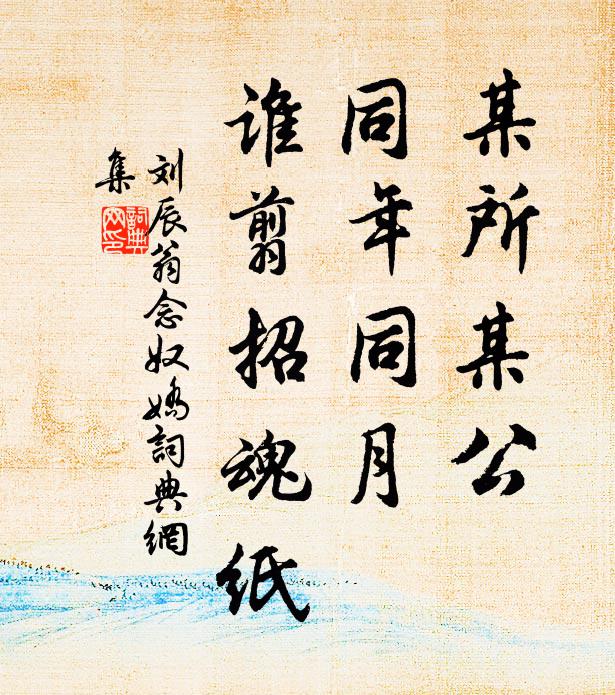 某所某公
同年同月
谁剪招魂纸
刘辰翁念奴娇詞典網
集
詞典网印